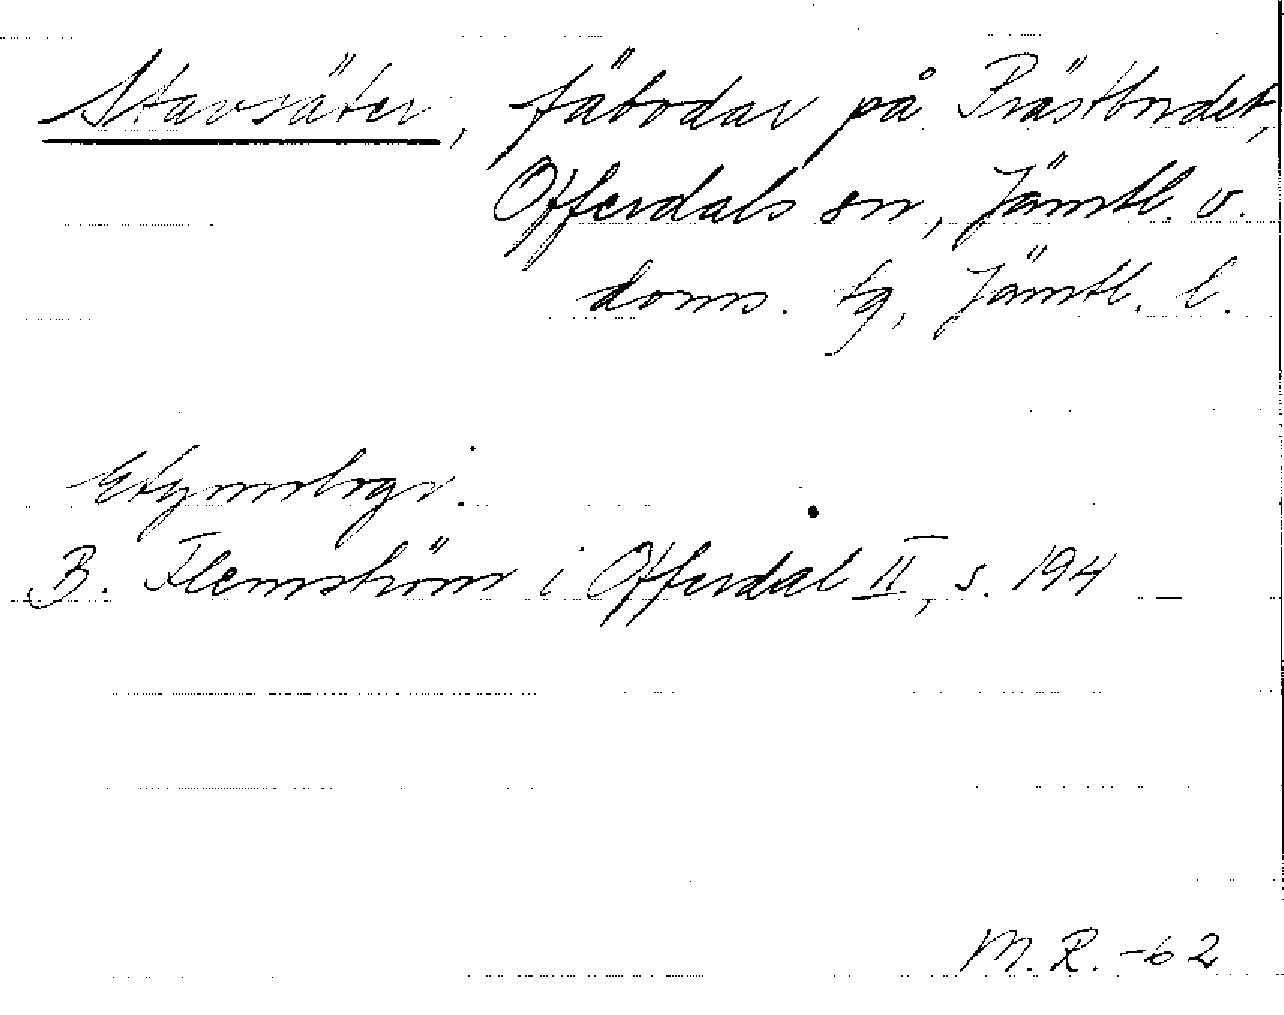 Stavsäter, fäbodar på Prästbordet,
Offerdals sn, Jämtl. v.
doms. tg, Jämtl. l.
Etymologi.
B. Flemström i Offerdal II, s. 194
M. R. -62